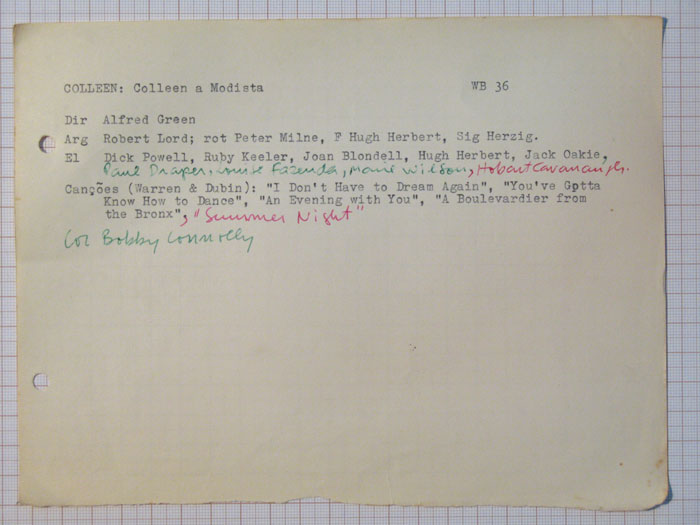 COLLEEN: Colleen a Modista WB 36
Dir Alfred Green
Arg Robert Lord; rot Peter Milne, F Hugh Herbert, Sig Herzig.
El Dick Powell, Ruby Keeler, Joan Blondell, Hugh Herbert, Jack Oakie,
Paul Draper, Louise Fazenda, Marie Wilson, Hobart Cavanaugh.
Canções (Warren & Dubin): "I Don't Have to Dream Again", "You've Gotta
Know How to Dance", "An Evening with You", "A Boulevardier from
the Bronx", "Summer Night"
Cor Bobby Connolly